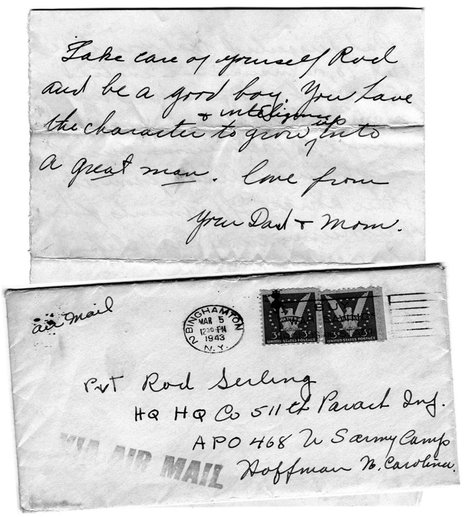 Take care of yourself Rod
and be a good boy. You have
& intelligence
the character to grow up into
a great man. Love from
your Dad & Mom.
air Mail
BINGHAMTON
2
MAR 5
12 PM
1943
N.Y.
UNITED STATES POSTAGE
UNITED STATES POSTAGE
Pvt Rod Serling
HQ HQ Co 511th Paract Inf.
APO 468 U S army Camp
Hoffman N. Carolina.
VIA AIR MAIL